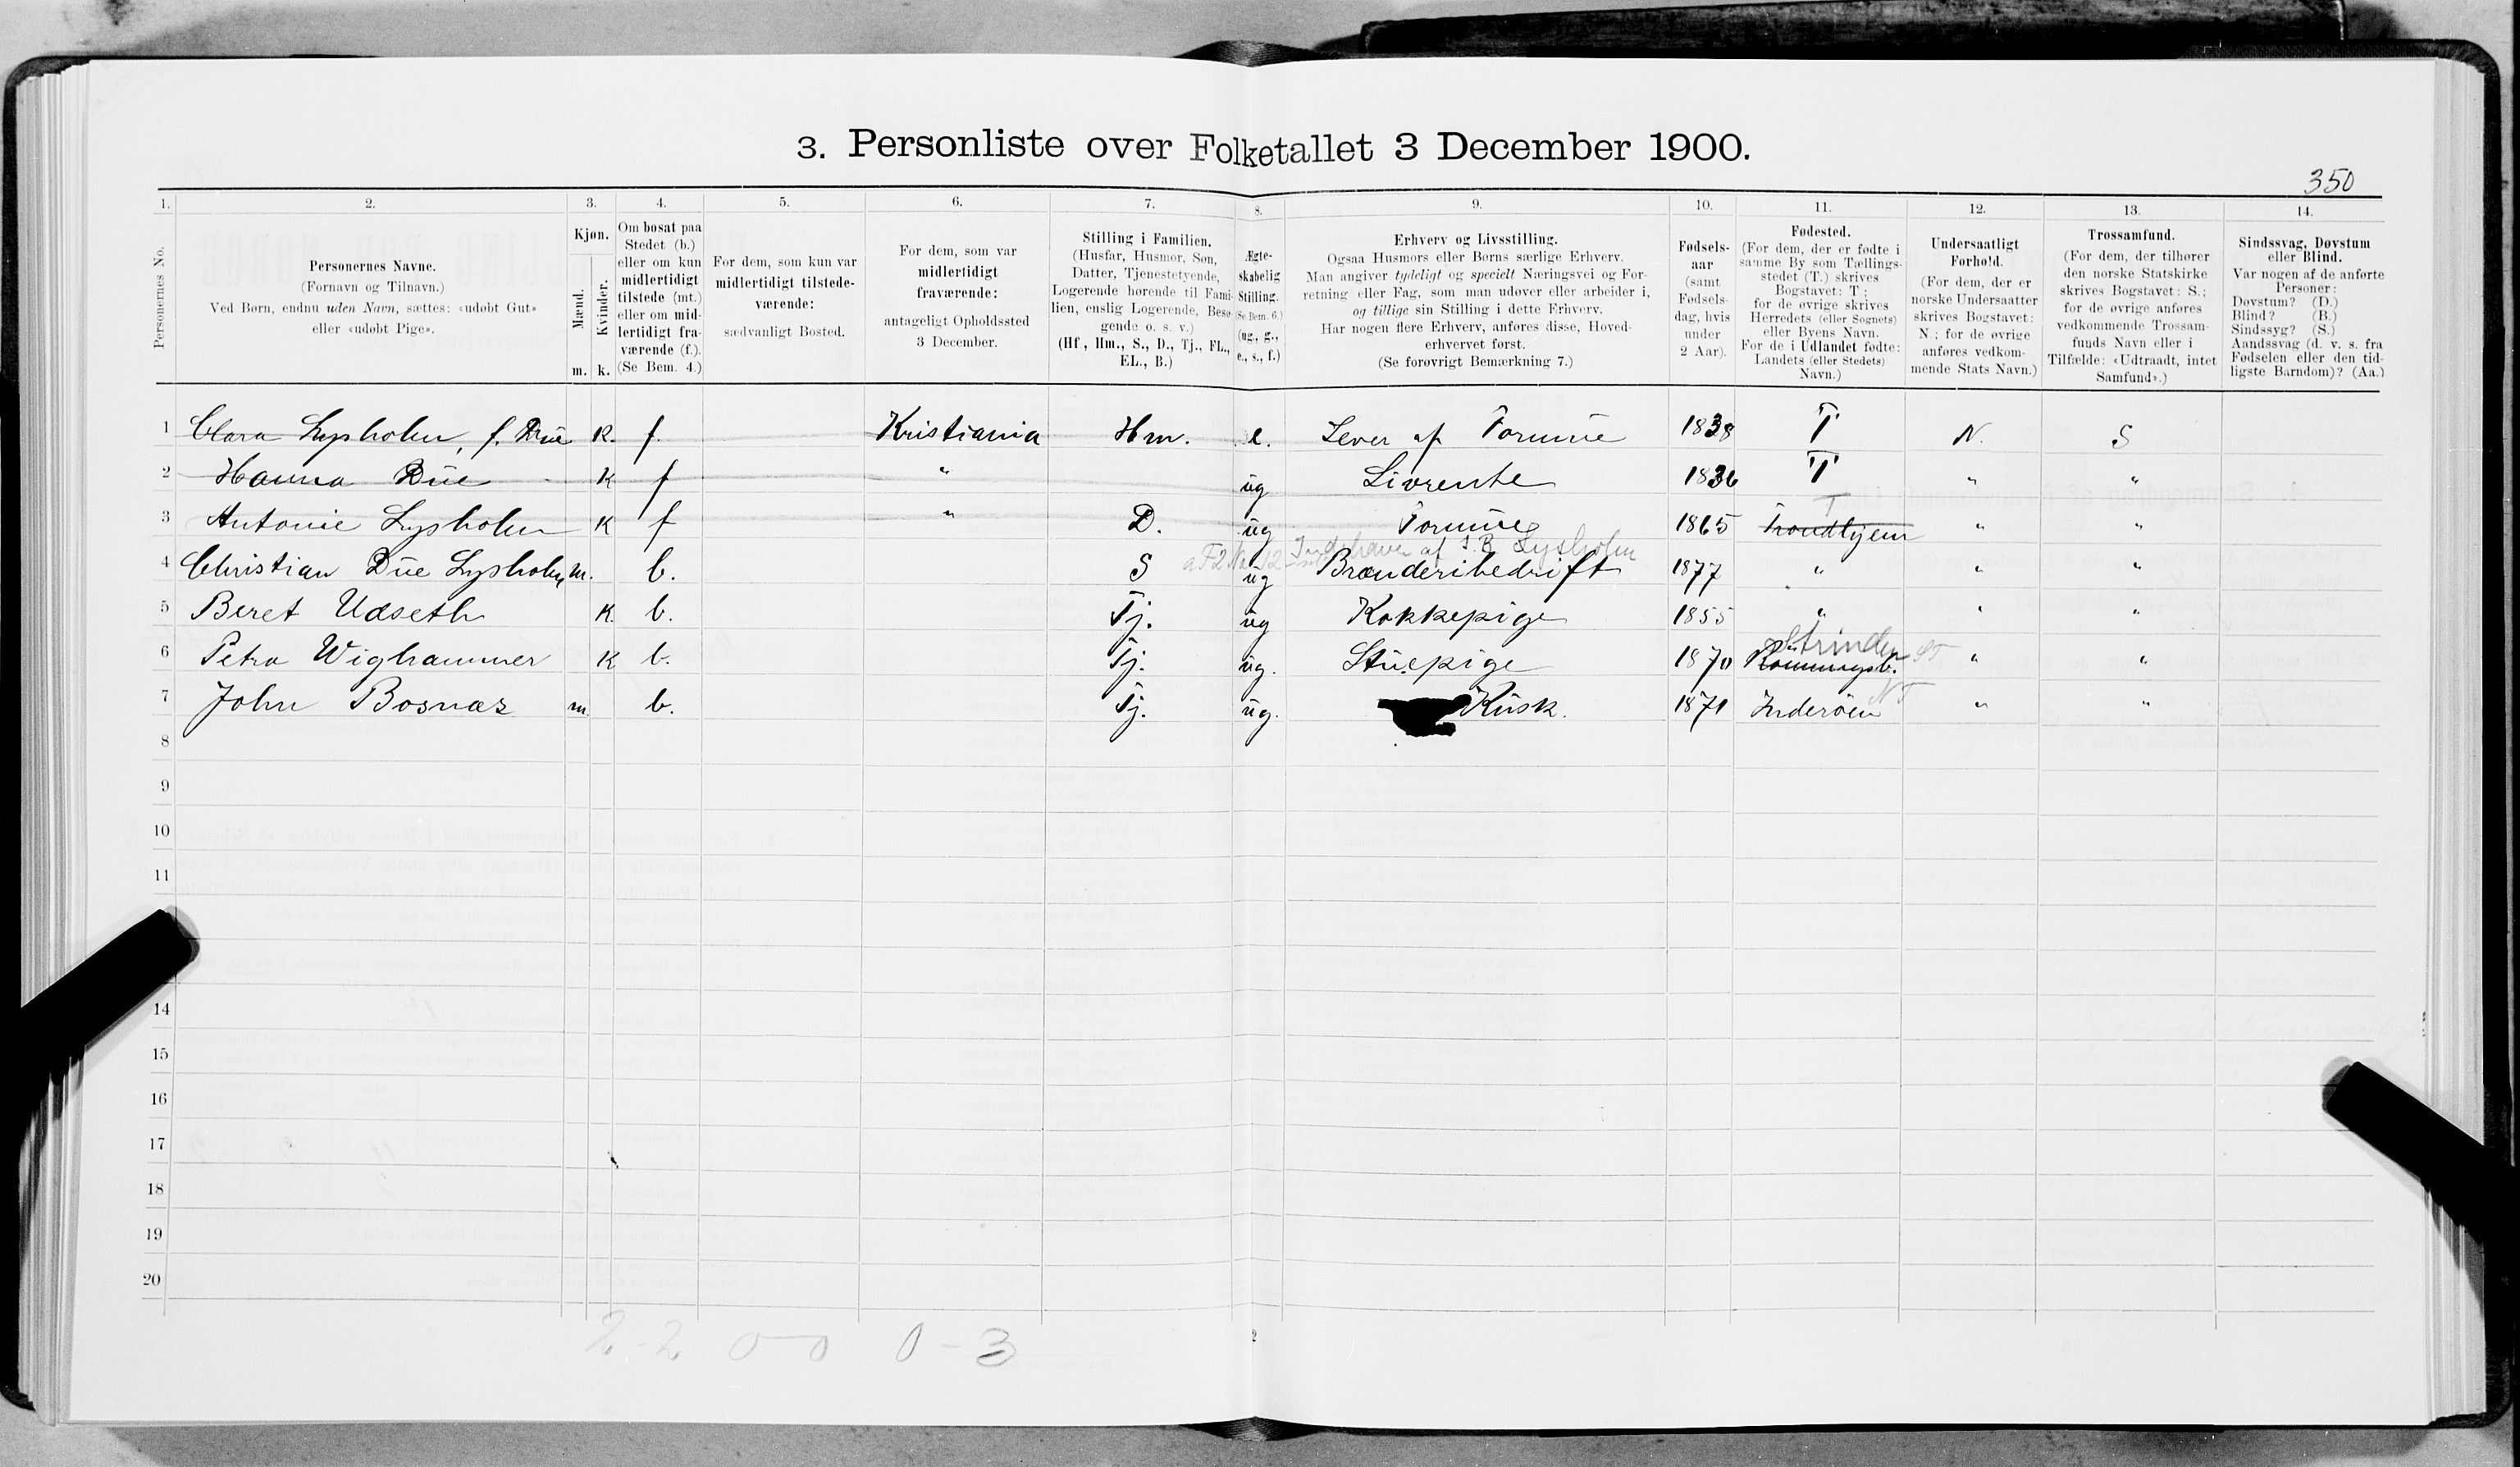 3. Personliste over Folketallet 3 December 1900.
350
1. 2. 3. 4. 5. 6. 7. 8. 9. 10. 11. 12. 13. 14.
Personernes No.
Personernes Navne.
(Fornavn og Tilnavn.)
Ved Børn, endnu uden Navn, sættes: «udøbt Gut»
eller «udøbt Pige».
Kjøn.
Mænd.
Kvinder.
m. k.
Om bosat paa
Stedet (b.)
eller om kun
midlertidigt
tilstede (mt.)
eller om mid-
lertidigt fra-
værende (f.).
(Se Bem. 4.)
For dem, som kun var
midlertidigt tilstede-
værende:
sædvanligt Bosted.
For dem, som var
midlertidigt
fraværende:
antageligt Opholdssted
3 December.
Stilling i Familien.
(Husfar, Husmor, Søn,
Datter, Tjenestetyende,
Logerende hørende til Fami-
lien, enslig Logerende, Besø-
gende o. s. v.)
(Hf., Hm., S., D., Tj., FL.,
EL., B.)
Ægte-
skabelig
Stilling.
(Se Bem. 6.)
(ug., g.,
e., s., f.)
Erhverv og Livsstilling.
Ogsaa Husmors eller Børns særlige Erhverv.
Man angiver tydeligt og specielt Næringsvei og For-
retning eller Fag, som man udøver eller arbeider i,
og tillige sin Stilling i dette Erhverv.
Har nogen flere Erhverv, anføres disse, Hoved-
erhvervet først.
(Se forøvrigt Bemærkning 7.)
Fødsels-
aar
(samt
Fødsels-
dag, hvis
under
2 Aar).
Fødested.
(For dem, der er fødte i
samme By som Tællings-
stedet (T.) skrives
Bogstavet: T;
for de øvrige skrives
Herredets (eller Sognets)
eller Byens Navn.
For de i Udlandet fødte:
Landets (eller Stedets)
Navn.)
Undersaatligt
Forhold.
(For dem, der er
norske Undersaatter
skrives Bogstavet:
N.; for de øvrige
anføres vedkom-
mende Stats Navn.)
Trossamfund.
(For dem, der tilhører
den norske Statskirke
skrives Bogstavet: S.;
for de øvrige anføres
vedkommende Trossam-
funds Navn eller i
Tilfælde: «Udtraadt, intet
Samfund».)
Sindssvag, Døvstum
eller Blind.
Var nogen af de anførte
Personer:
Døvstum? (D.)
Blind? (B.)
Sindssyg? (S.)
Aandssvag (d. v. s. fra
Fødselen eller den tid-
ligste Barndom)? (Aa.)
1 Clara Lysholm, f. Düe K. f. Kristiania Hm. e. Lever af Formüe 1838 T N. S
2 Hanna Düe K f " ug Livrente 1836 T " "
T
3 Antonie Lysholm K f " D. ug Formüe 1865 Trondhjem " "
Indehaver af J. B. Lysholm
4 Christian Düe Lysholm m. b. S ug Brænderibedrift 1877 " " "
5 Beret Udseth K. b. Tj. ug Kokkepige 1855 " " "
Strinden ST
6 Petra Wighammer K b. Tj. ug. Stuepige 1870 " "
NT
7 John Bosnæs m. b. Tj. ug. Küsk. 1871 Inderøen " "
8
9
10
11
14
15
16
17
18
19
20
2-2 0-0 0-3
2